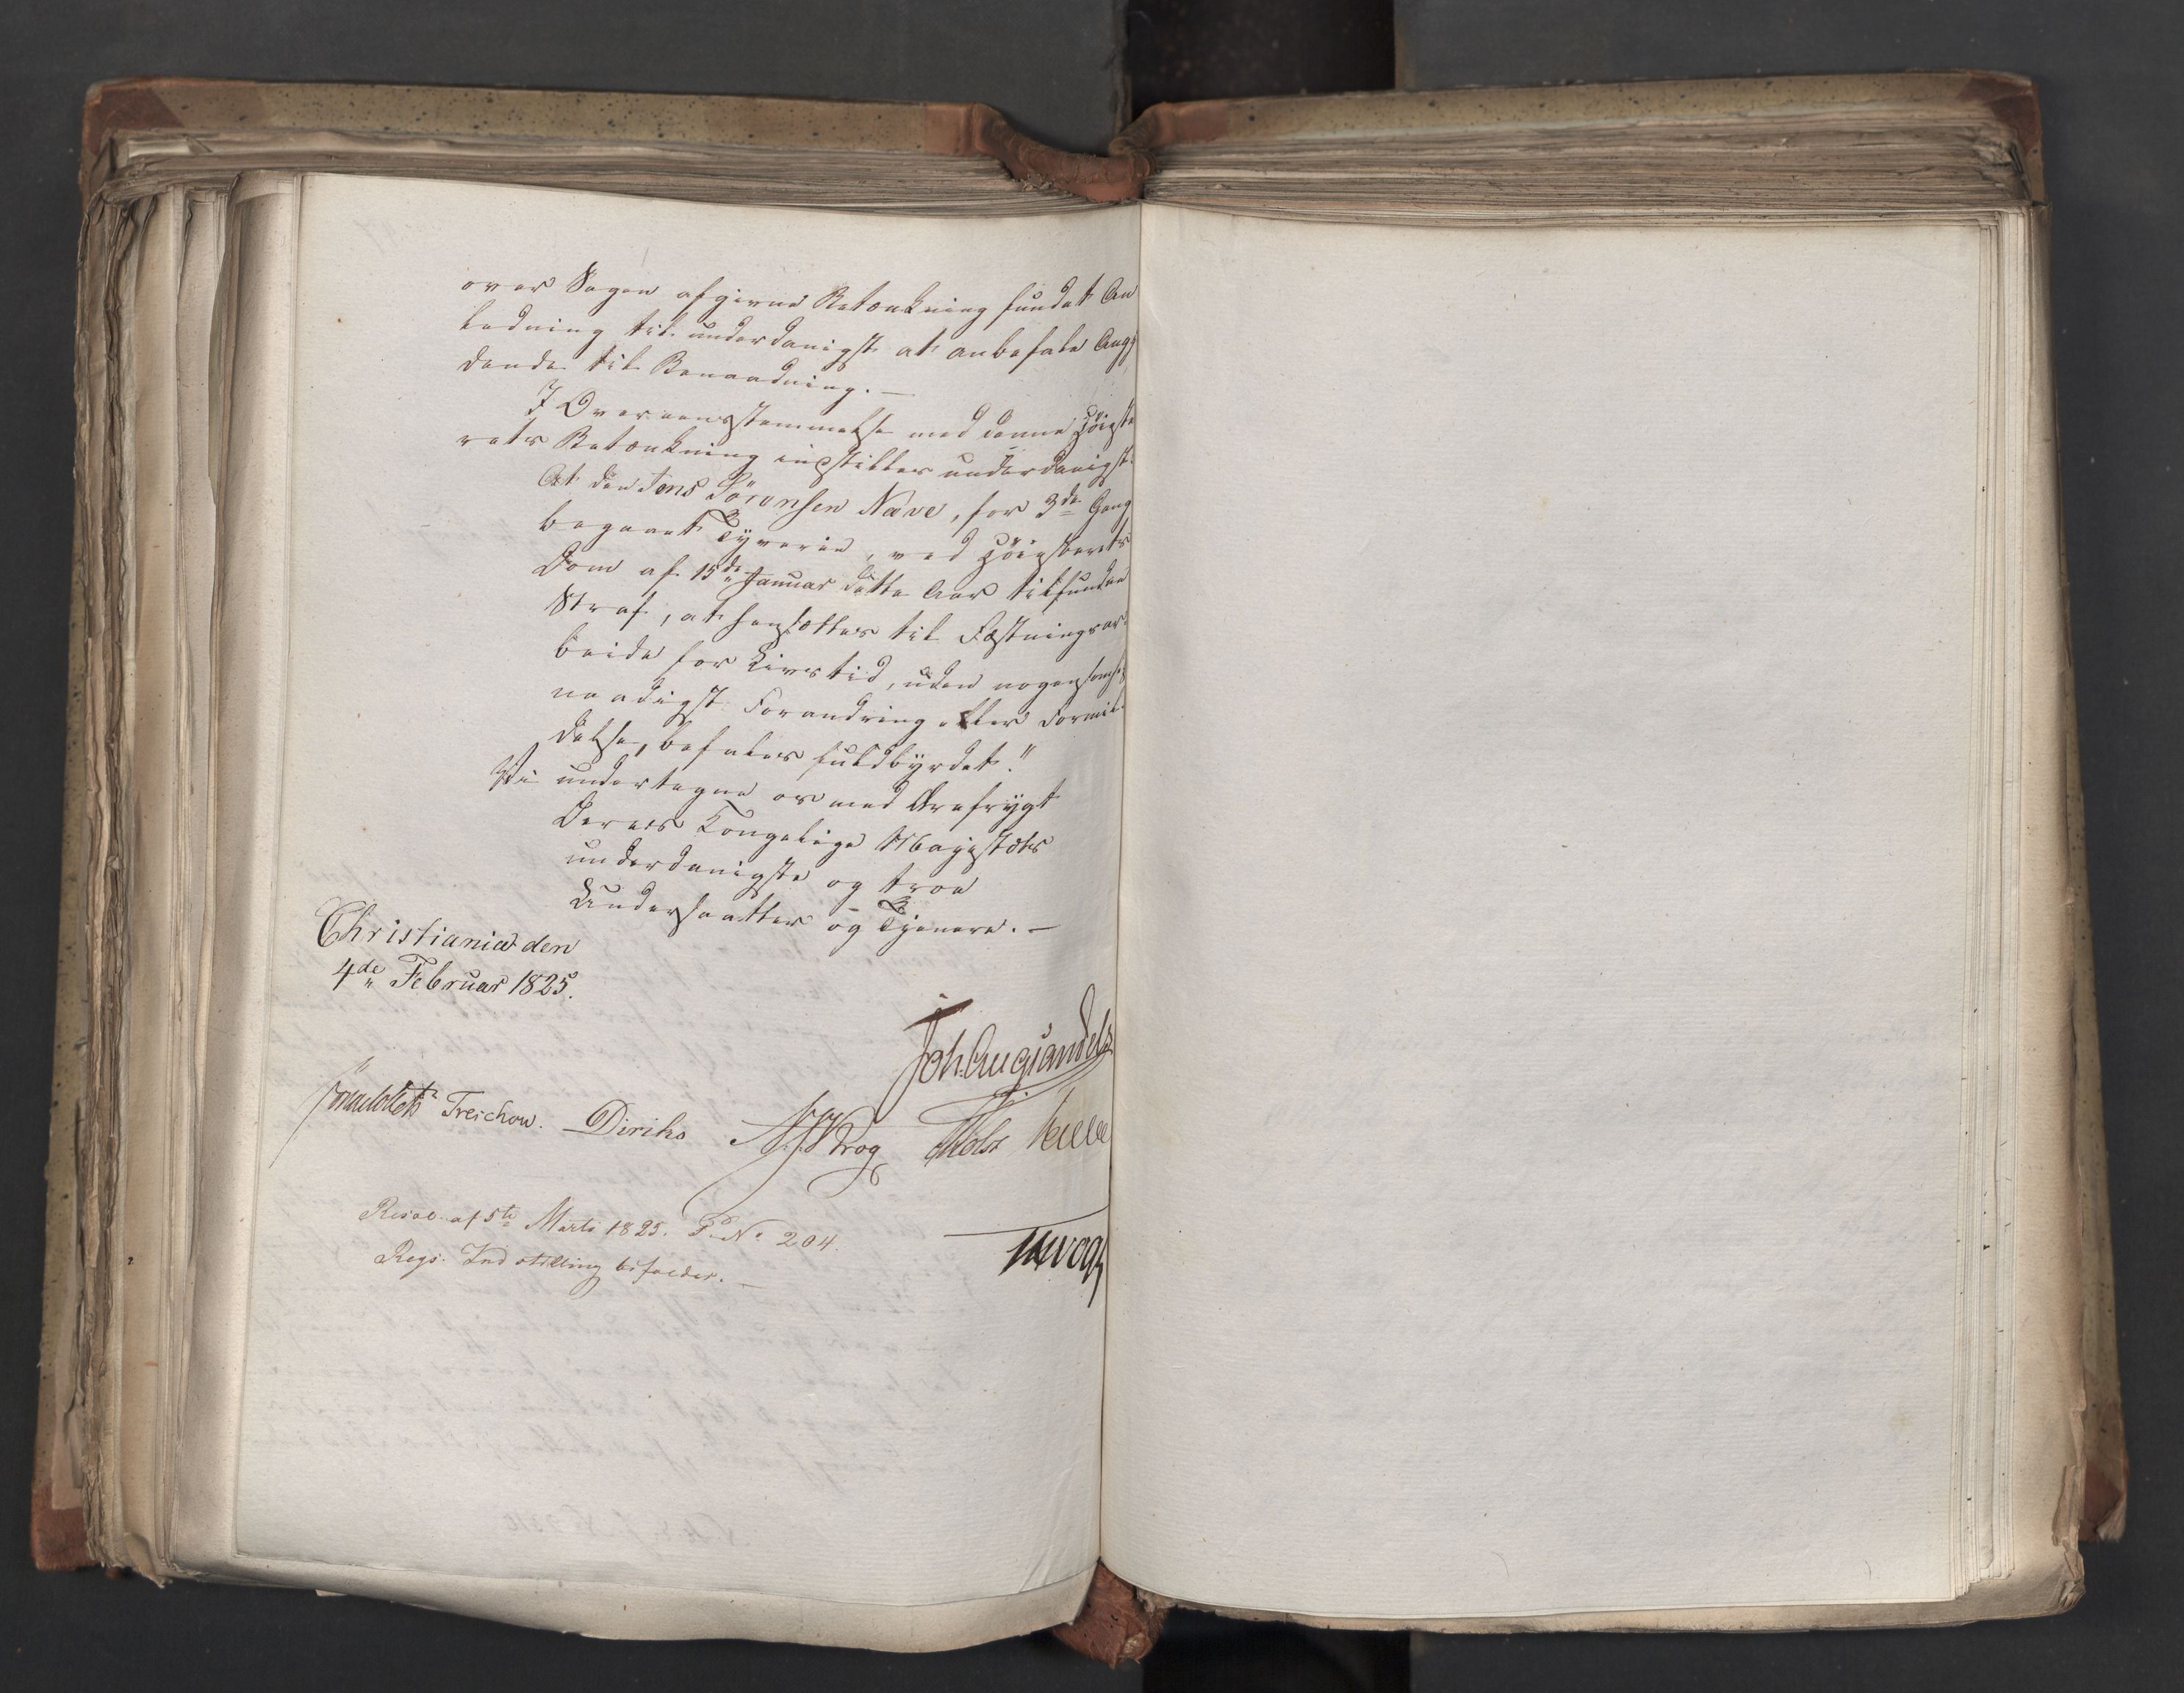 over Sagen afgivne Betænkning fundet An
ledning til underdanigst at anbefale Angj
dende til Benaadning. —
I Overeensstemmelse med denne Høieste
rets Betænkning indstilles underdanigst:
At den Jens Sörensen Næve, for 3de Gang
begaaet Tyverie, ved Høiesterets
Dom af 15de Januar dette Aar tilfundne
Straf, at hensættes til Fæstningsar-
beide for Livstid, uden nogensomhelst
naadigst Forandring eller Formil-
delse, befales fuldbyrdet."
Vi undertegne os med Ærefrygt
Deres Kongelige Majestæts
underdanigste og troe
Undersaatter og Tjenere. —
Christiania den
4de Februar 1825.
Joh. Aug. Sandels
Treschow. Diriks Krog
Resol. af 5te Marts 1825. P. No 204.
Regs. Indstilling bifaldes. —